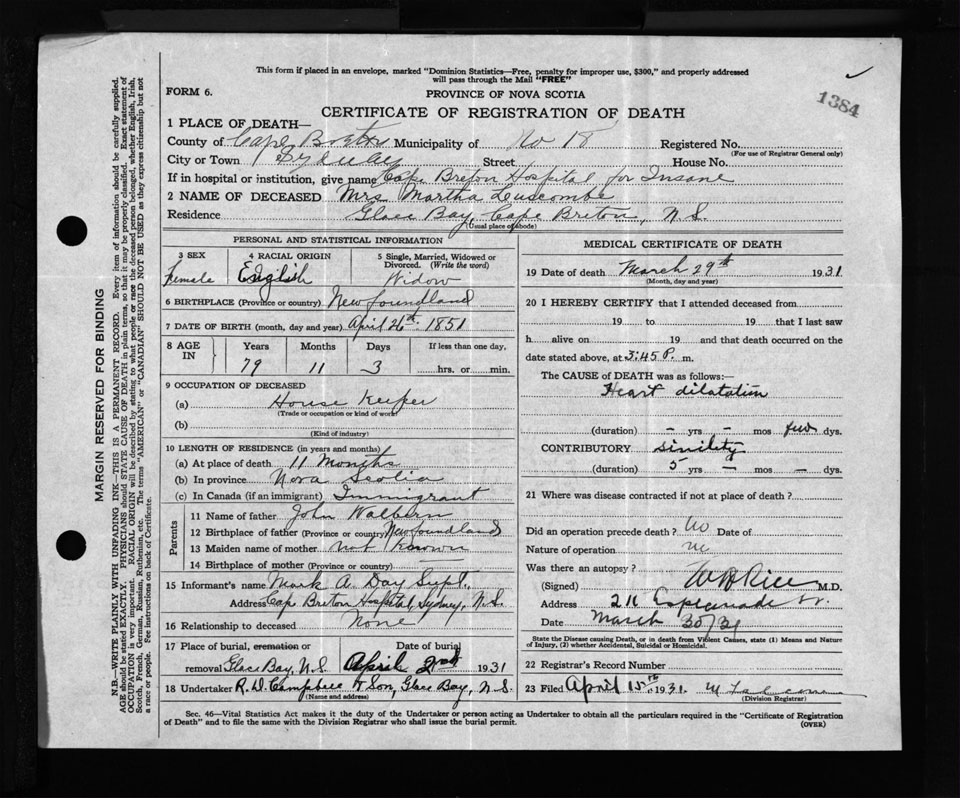 This form if placed in an envelope, marked "Dominion Statistics—Free, penalty for improper use, $300," and properly addressed
will pass through the Mail "FREE"
FORM 6.
PROVINCE OF NOVA SCOTIA
1384
CERTIFICATE OF REGISTRATION OF DEATH
1 PLACE OF DEATH—
County of Cape Breton Municipality of No 18 Registered No.
(For use of Registrar General only)
City or Town Sydney Street House No.
If in hospital or institution, give name Cape Breton Hospital for Insane
2 NAME OF DECEASED Mrs Martha Luscombe
Residence Glace Bay, Cape Breton, N.S.
(Usual place of abode)
PERSONAL AND STATISTICAL INFORMATION
3 SEX 4 RACIAL ORIGIN 5 Single, Married, Widowed or
Divorced. (Write the word)
Female English Widow
6 BIRTHPLACE (Province or country) Newfoundland
7 DATE OF BIRTH (month, day and year) April 26th 1851
8 AGE IN Years Months Days If less than one day,
79 11 3 hrs. or min.
9 OCCUPATION OF DECEASED
(a) House Keeper
(Trade or occupation or kind of work)
(b)
(Kind of industry)
10 LENGTH OF RESIDENCE (in years and months)
(a) At place of death 11 Months
(b) In province Nova Scotia
(c) In Canada (if an immigrant) Immigrant
Parents
11 Name of father John Walburn
12 Birthplace of father (Province or country) Newfoundland
13 Maiden name of mother not known
14 Birthplace of mother (Province or country) —
15 Informant's name Mark A. Day Supt.
Address Cape Breton Hospital, Sydney, N.S.
16 Relationship to deceased None
17 Place of burial, cremation or Date of burial
removal Glace Bay, N.S. April 2nd 1931
18 Undertaker R. D. Campbell & Son, Glace Bay, N.S.
(Name and address)
MEDICAL CERTIFICATE OF DEATH
19 Date of death March 29th 1931
(Month, day and year)
20 I HEREBY CERTIFY that I attended deceased from
19 to 19 that I last saw
h alive on 19 and that death occurred on the
date stated above, at 3:45 P. m.
The CAUSE of DEATH was as follows:—
Heart dilatation
(duration) – yrs – mos few dys.
CONTRIBUTORY sinility
(duration) 5 yrs – mos – dys.
21 Where was disease contracted if not at place of death?
Did an operation precede death? no Date of
Nature of operation no
Was there an autopsy?
(Signed) Rice M.D.
Address Esplanade
Date March 30/31
State the Disease causing Death, or in death from Violent Causes, state (1) Means and Nature
of Injury, (2) whether Accidental, Suicidal or Homicidal.
22 Registrar's Record Number
23 Filed April 15th 1931
(Division Registrar)
Sec. 46—Vital Statistics Act makes it the duty of the Undertaker or person acting as Undertaker to obtain all the particulars required in the "Certificate of Registration
of Death" and to file the same with the Division Registrar who shall issue the burial permit.
(OVER)
MARGIN RESERVED FOR BINDING
N.B.—WRITE PLAINLY WITH UNFADING INK—THIS IS A PERMANENT RECORD. Every item of information should be carefully supplied.
AGE should be stated EXACTLY. PHYSICIANS should STATE CAUSE OF DEATH in plain terms, so that it may be properly classified. Exact statement of
OCCUPATION is very important. RACIAL ORIGIN will be described by stating to what people or race the deceased person belonged, whether English, Irish,
Scotch, French, German, Russian, Ruthenian, etc. The terms "AMERICAN" or "CANADIAN" SHOULD NOT BE USED as they express citizenship but not
a race or people. Fee instructions on back of Certificate.